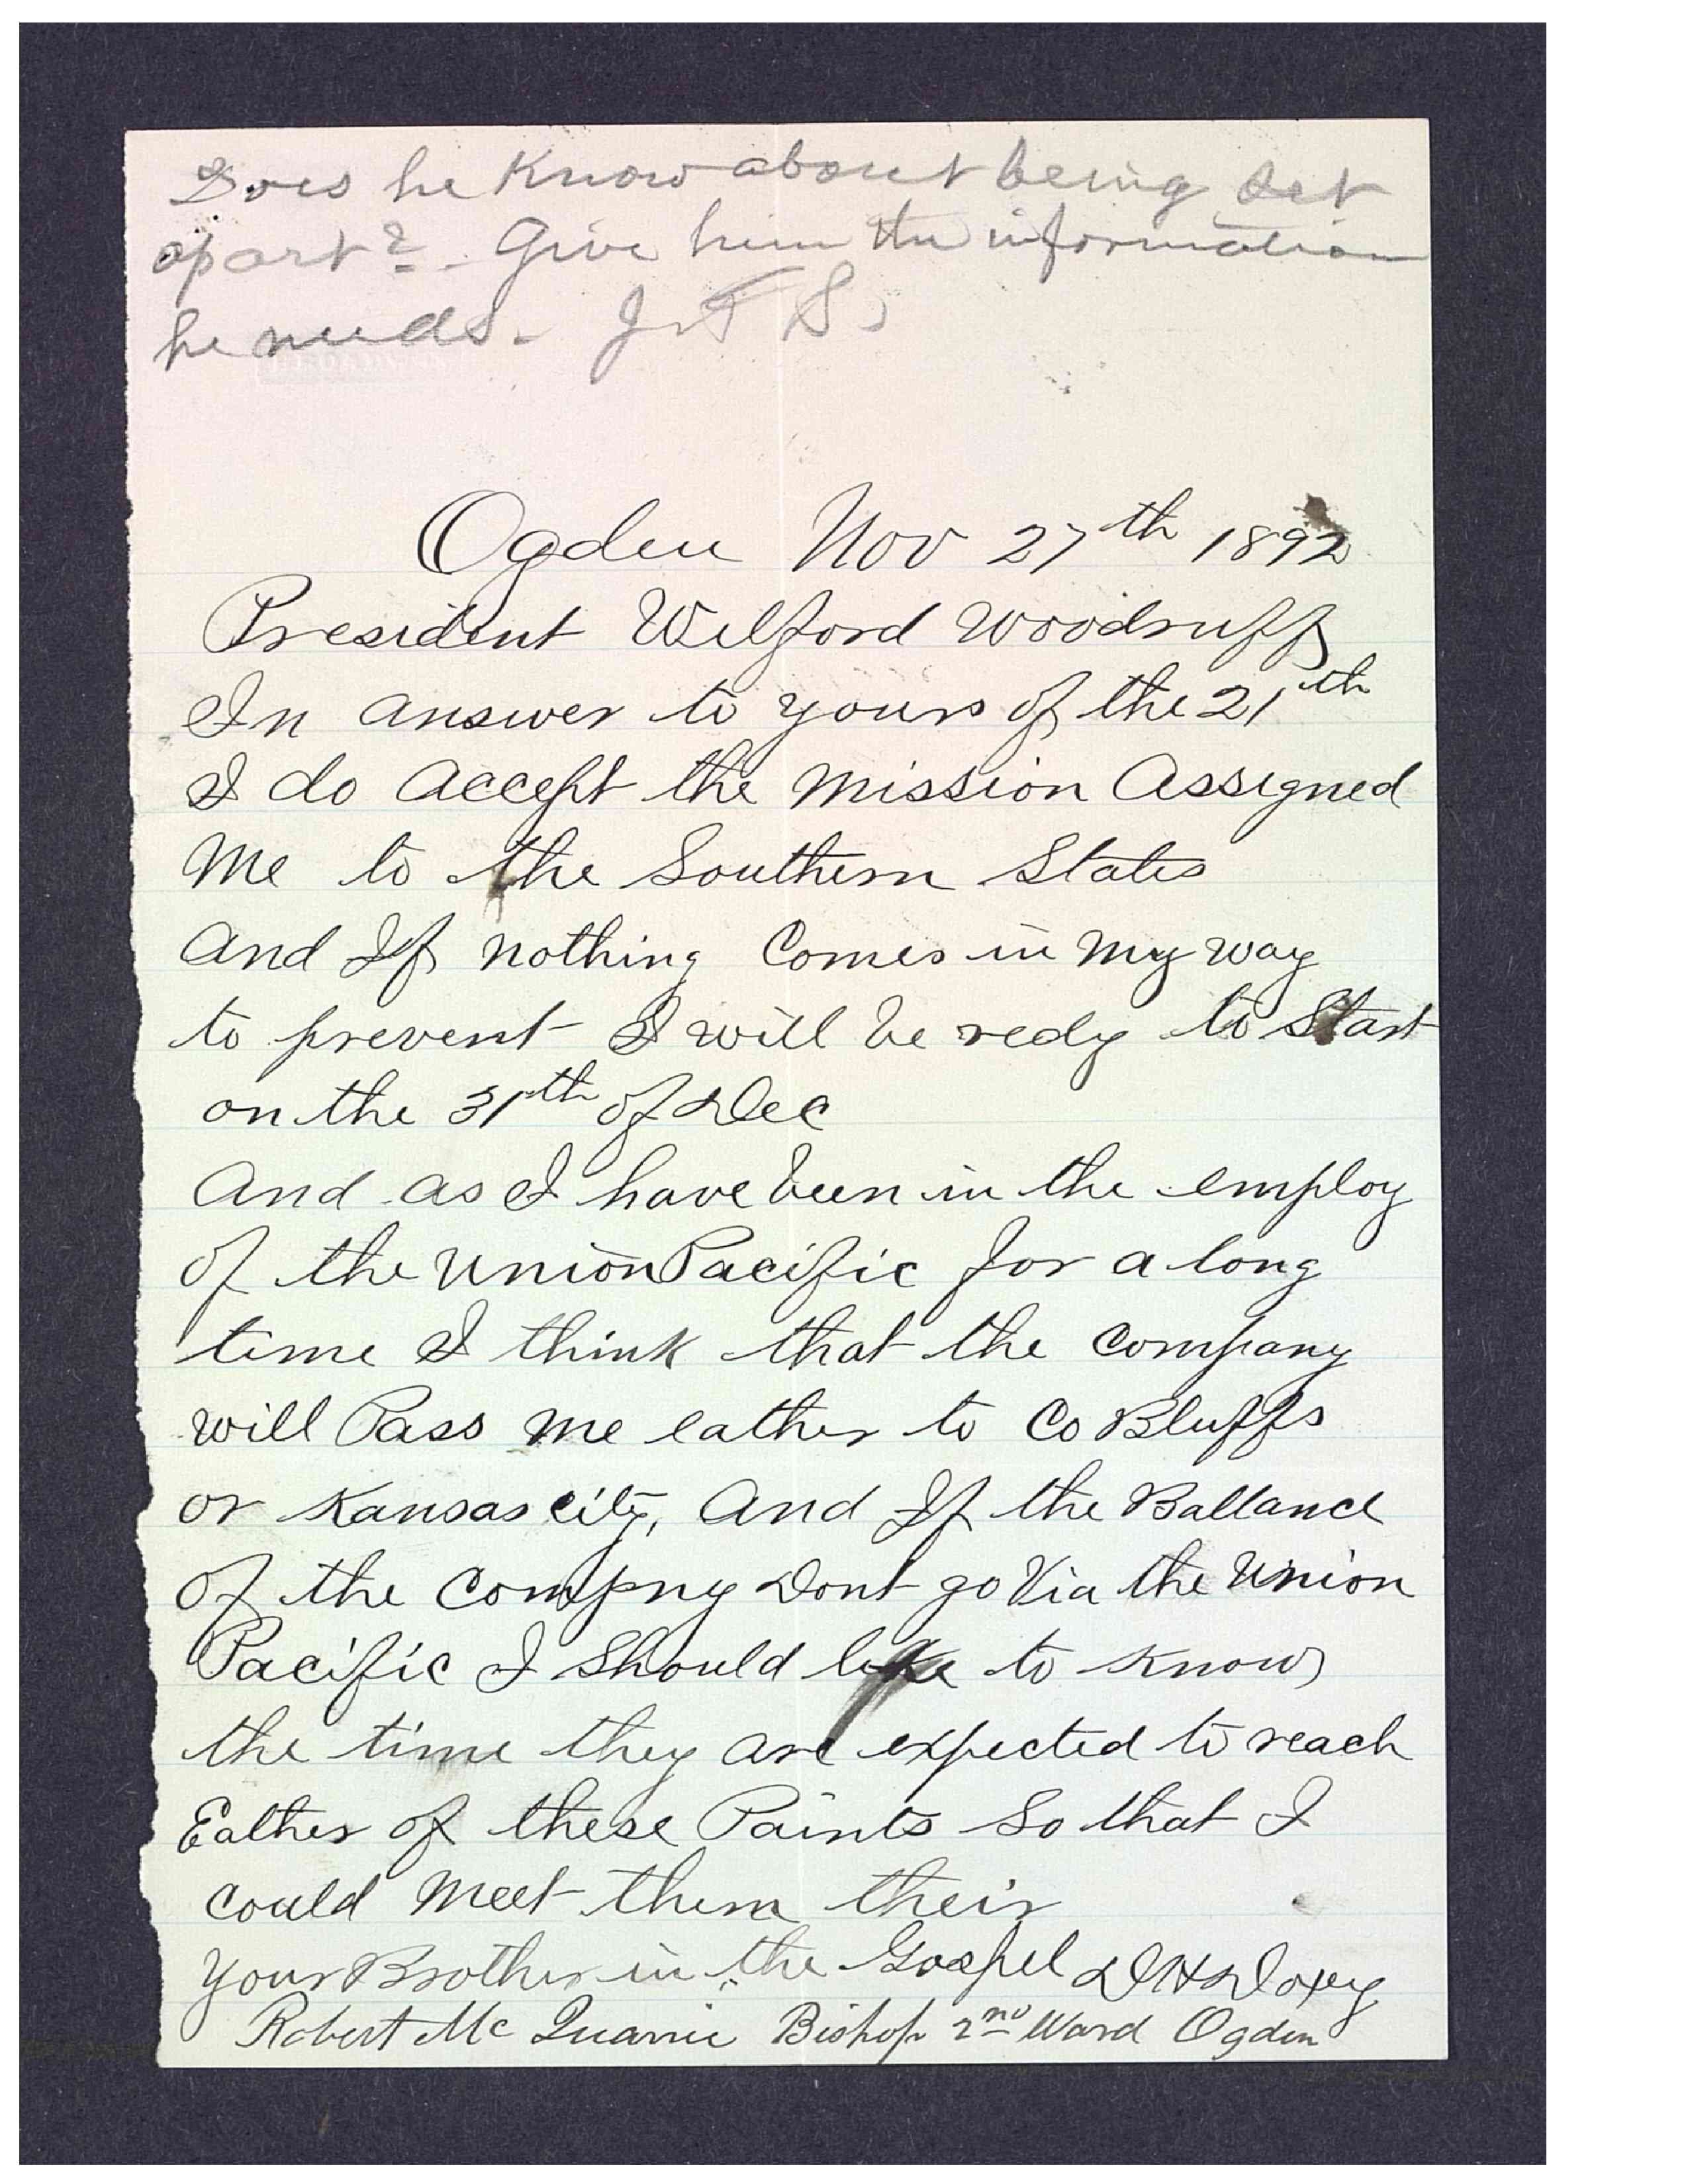 Does he Know about being set
apart? Give him the information
he needs. J. F. S.
Ogden Nov 27th 1892
President Wilford Woodruff
In answer to yours of the 21th
I do accept the Mission Assigned
Me to the Southern States
And If nothing Comes in My way
to prevent I will be redy to Start
on the 31th of Dec
And as I have been in the employ
of the Union Pacific for a long
time I think that the Company
will Pass me eather to Co Bluffs
or Kansas City, And If the Ballance
of the Compny Dont go Via the Union
Pacific I Should like to Know
the time they are expected to reach
Eather of these Points So that I
could Meet them their
Your Brother in the Gospel D H Doxey
Robert Mc Quarrie Bishop 2nd Ward Ogden